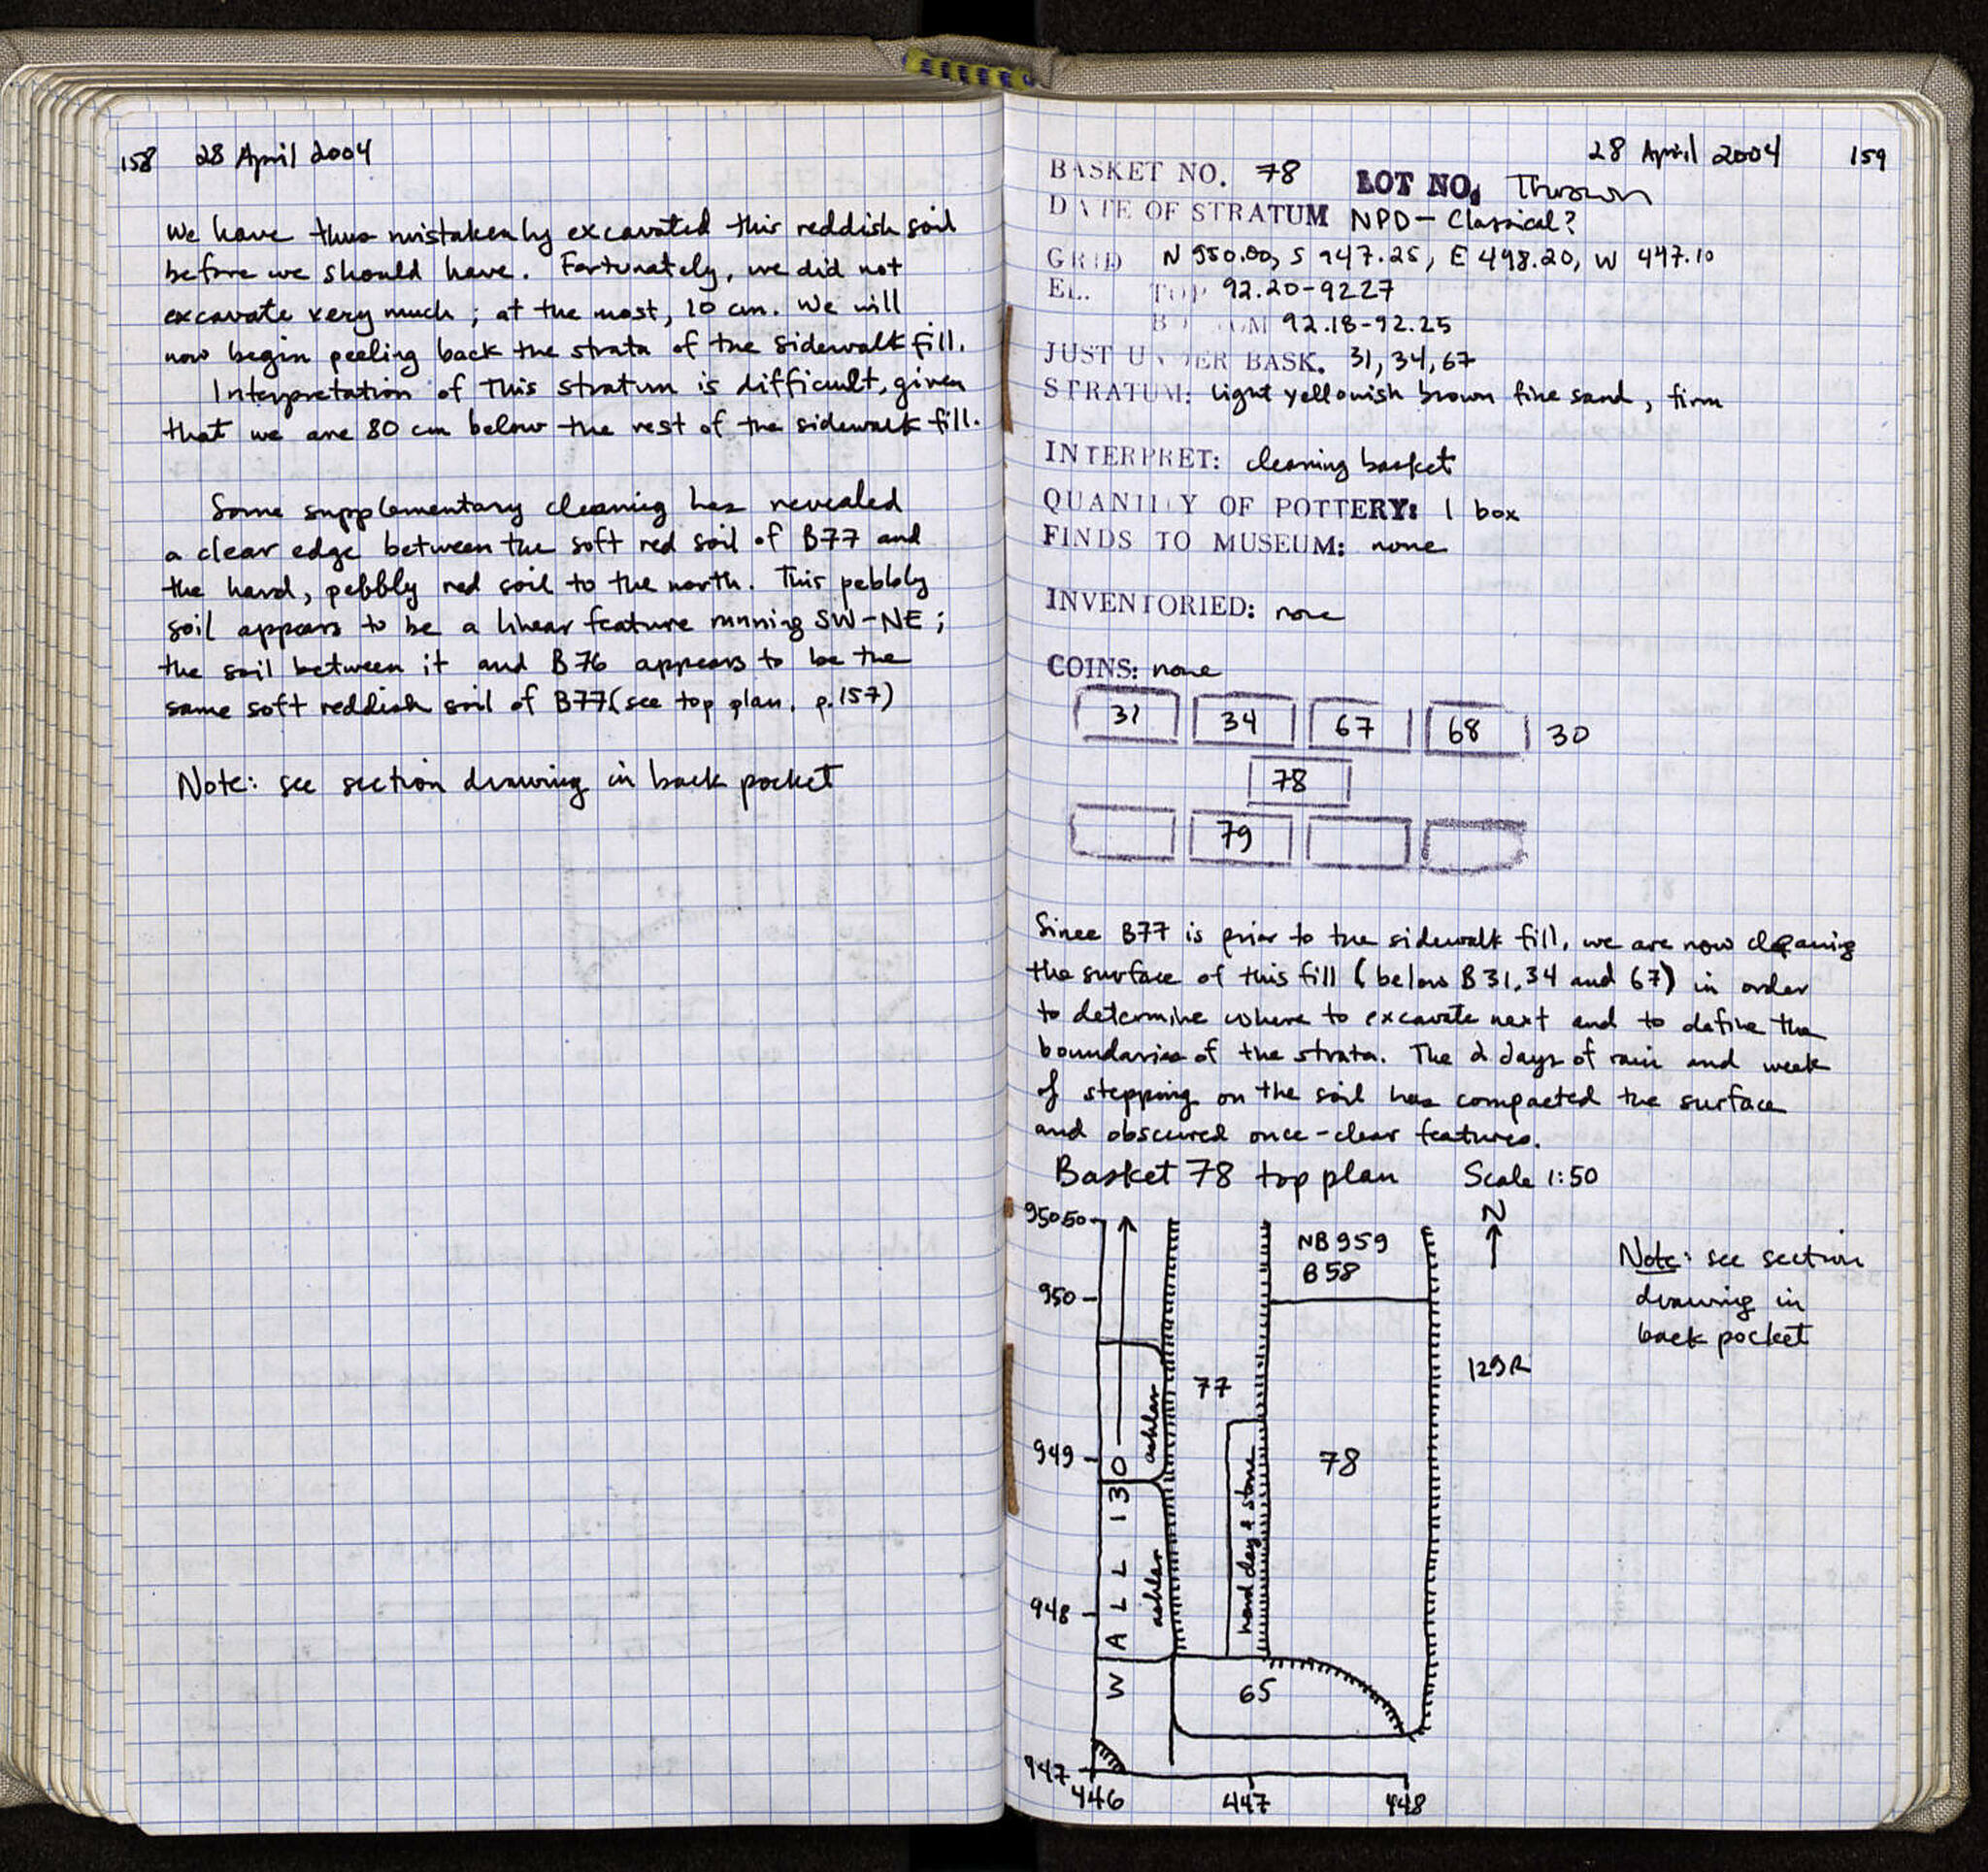 158 28 April 2004
We have thus mistakenly excavated this reddish soil
before we should have. Fortunately, we did not
excavate very much; at the most, 10 cm. We will
now begin peeling back the strata of the sidewalk fill.
Interpretation of this stratum is difficult, given
that we are 80 cm below the rest of the sidewalk fill.
Some supplementary cleaning has revealed
a clear edge between the soft red soil of B77 and
the hard, pebbly red soil to the north. This pebbly
soil appears to be a linear feature running SW-NE;
the soil between it and B76 appears to be the
same soft reddish soil of B77 (see top plan, p.157)
Note: see section drawing in back pocket
28 April 2004 159
BASKET NO. 78 LOT NO. Thrown
DATE OF STRATUM NPD - Classical?
GRID N 950.00, S 947.25, E 498.20, W 447.10
EL. TOP 92.20-9227
BOTTOM 92.18-92.25
JUST UNDER BASK. 31, 34, 67
STRATUM: light yellowish brown fine sand, firm
INTERPRET: cleaning basket
QUANTITY OF POTTERY: 1 box
FINDS TO MUSEUM: none
INVENTORIED: none
COINS: none
31 34 67 68 30
78
79
Since B77 is prior to the sidewalk fill, we are now cleaning
the surface of this fill (below B31, 34 and 67) in order
to determine where to excavate next and to define the
boundaries of the strata. The 2 days of rain and week
of stepping on the soil has compacted the surface
and obscured once-clear features.
Basket 78 top plan Scale 1:50
N
950.50
NB959
B58
Note: see section
drawing in
back pocket
950
129R
77
ashlar
949
78
hard clay & stone
ashlar
948
WALL 130
65
947
446 447 448